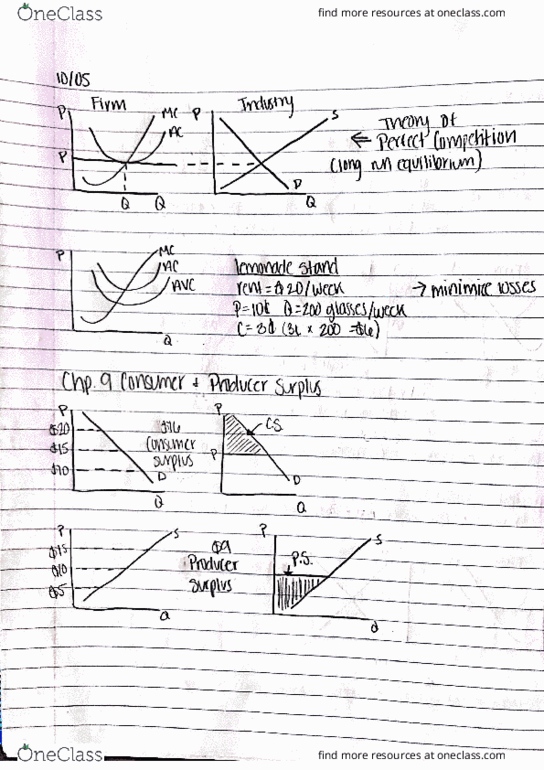 OneClass
find more resources at oneclass.com
10/05
Firm
Industry
P
MC
AC
P
Q
Q
P
S
D
Q
Theory of
← Perfect Competition
(long run equilibrium)
P
MC
AC
AVC
Q
lemonade stand
rent = $20/week
→ minimize losses
P=10¢ Q=200 glasses/week
C=3¢ (3¢ x 200 = $6)
Chp. 9 Consumer + Producer Surplus
P
$20
$15
$10
D
Q
Consumer
surplus
P
CS
P
D
Q
P
$15
$10
$5
S
Q
$9
Producer
surplus
P
P.S.
S
Q
OneClass
find more resources at oneclass.com